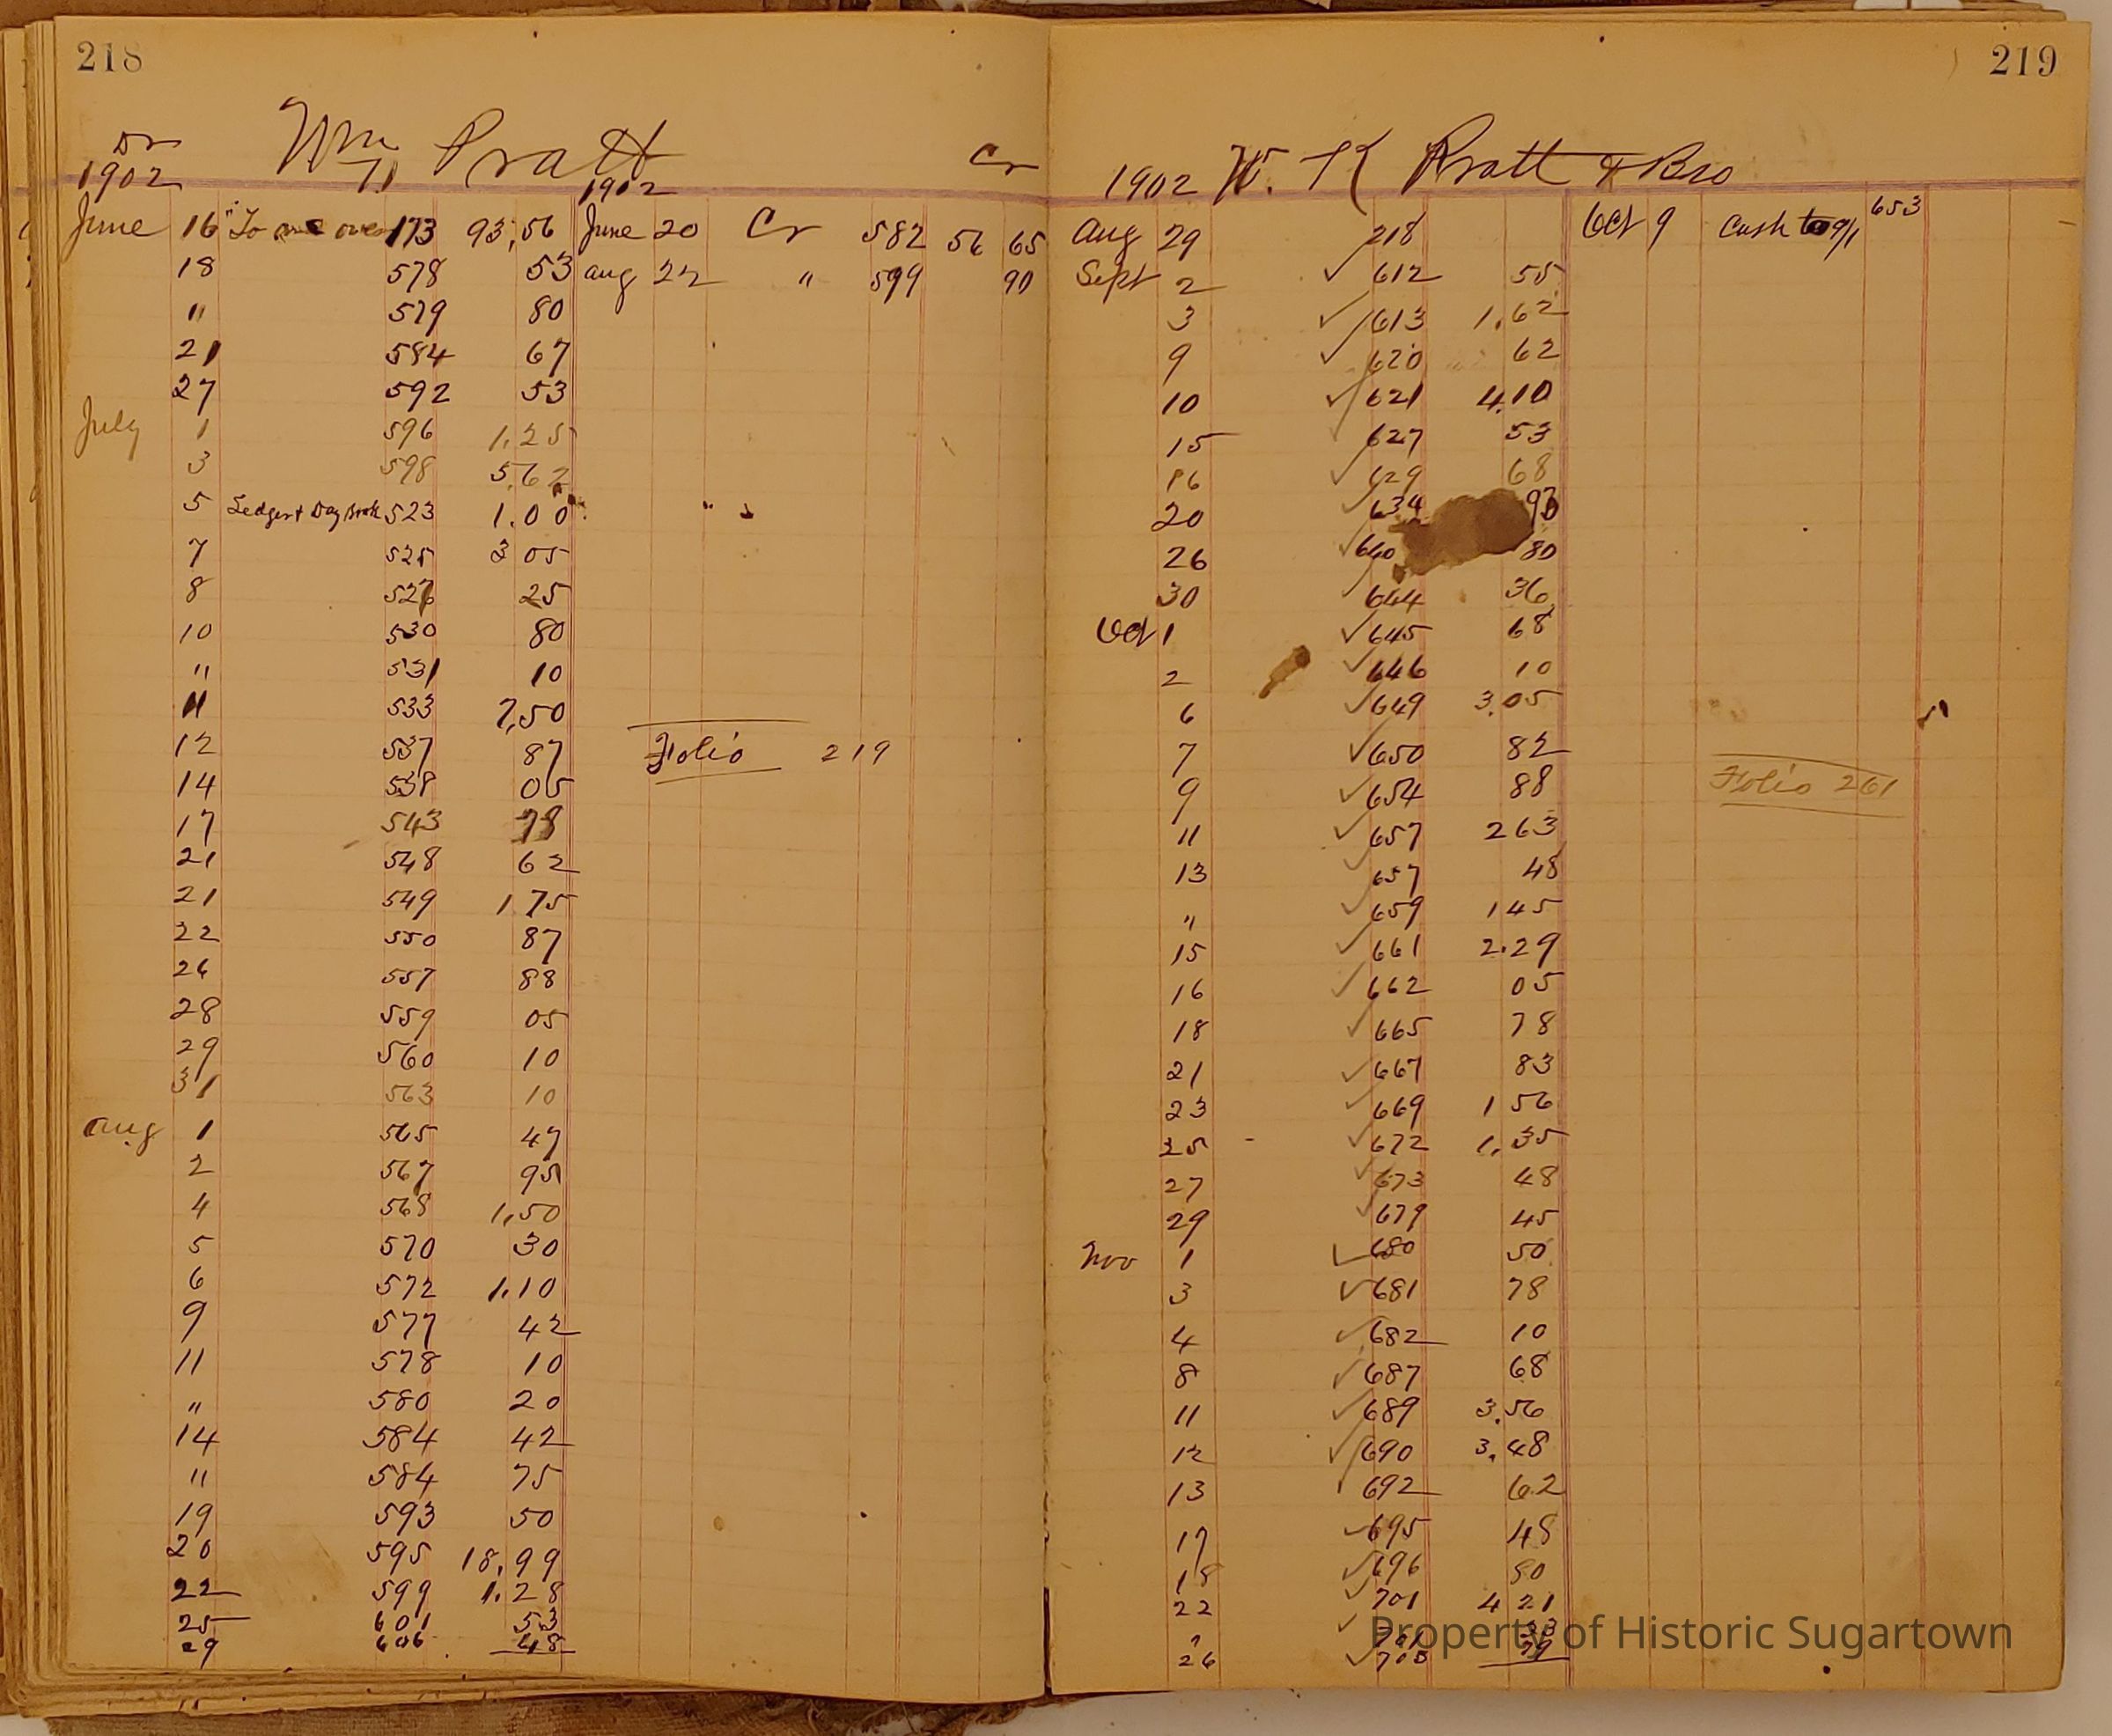 218
Dr Wm Pratt Cr
1902 1902
June 16 To over 173 93,56 June 20 Cr 582 56 65
18 578 53 Aug 22 " 599 90
" 579 80
21 584 67
27 592 53
July 1 596 1.25
3 598 5.62
5 Ledger & Day Book 523 1.00
7 525 3 05
8 527 25
10 530 80
" 531 10
11 533 7,50
12 537 87 Folio 219
14 538 05
17 543 78
21 548 62
21 549 1 75
22 550 87
26 557 88
28 559 05
29 560 10
31 563 10
Aug 1 565 47
2 567 95
4 568 1,50
5 570 30
6 572 1.10
9 577 42
11 578 10
" 580 20
14 584 42
" 584 75
19 593 50
20 595 18,99
22 599 1.28
25 601 53
29 606 48
219
1902 W. K Pratt & Bro
Aug 29 218 Oct 9 Cash to 9/1 653
Sept 2 ✓ 612 55
3 ✓ 613 1.62
9 ✓ 620 62
10 ✓ 621 4.10
15 ✓ 627 53
16 ✓ 629 68
20 ✓ 634 93
26 ✓ 640 80
30 ✓ 644 36
Oct 1 ✓ 645 68
2 ✓ 646 10
6 ✓ 649 3.05
7 ✓ 650 82
9 ✓ 654 88 Folio 261
11 ✓ 657 2 63
13 ✓ 657 48
" ✓ 659 1 45
15 ✓ 661 2.29
16 ✓ 662 05
18 ✓ 665 78
21 ✓ 667 83
23 ✓ 669 1 56
25 ✓ 672 1.35
27 ✓ 673 48
29 ✓ 679 45
Nov 1 ✓ 680 50
3 ✓ 681 78
4 ✓ 682 10
8 ✓ 687 68
11 ✓ 689 3.56
12 ✓ 690 3.48
13 ✓ 692 62
17 ✓ 695 48
18 ✓ 696 80
22 ✓ 701 4 21
✓ 33
26 ✓ 705 79
Property of Historic Sugartown